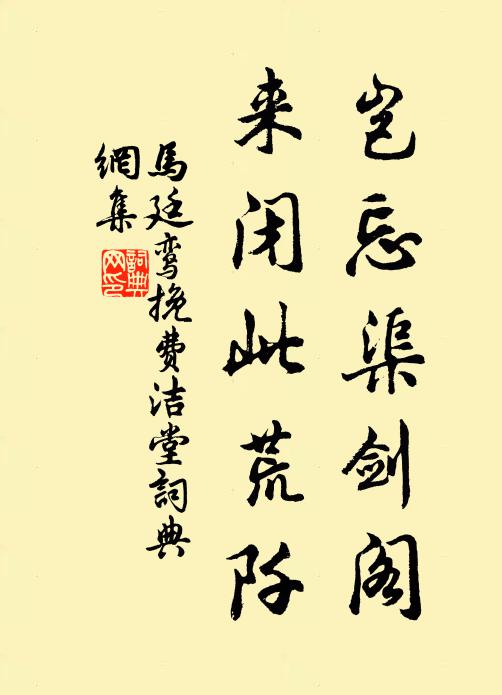 岂忘渠剑阁
来闭此荒阡
馬廷鸾挽费洁堂詞典
網集
詞典
网印